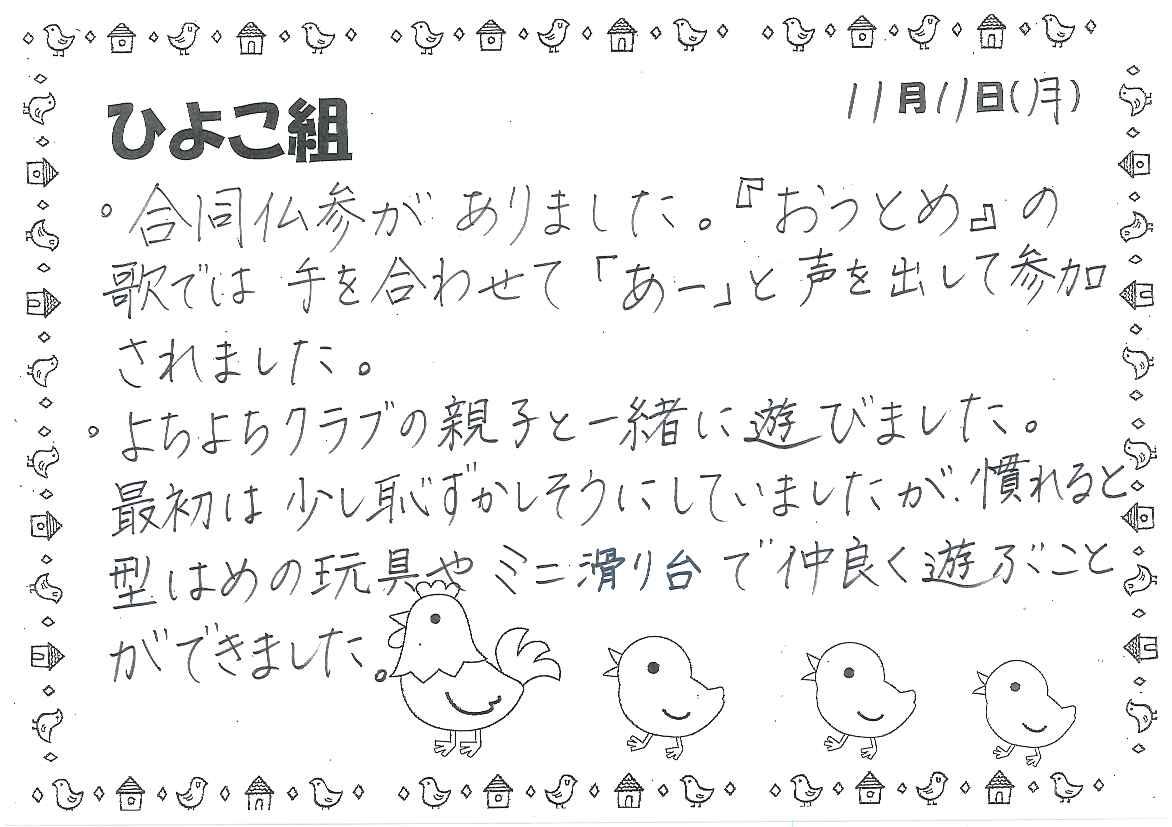 11月11日(月)
ひよこ組
。合同仏参がありました。『おつとめ』の
歌では手を合わせて「あー」と声を出して参加
されました。
。よちよちクラブの親子と一緒に遊びました。
最初は少し恥ずかしそうにしていましたが、慣れると
型はめの玩具やミニ滑り台で仲良く遊ぶこと
ができました。